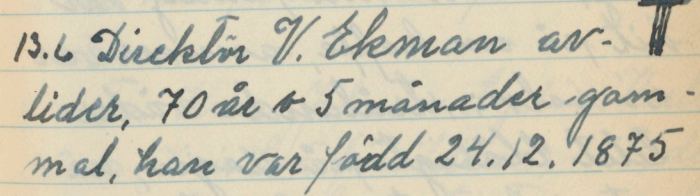 13.6 Direktör V. Ekman av-
lider, 70 år o 5 månader gam-
mal, han var född 24.12.1875